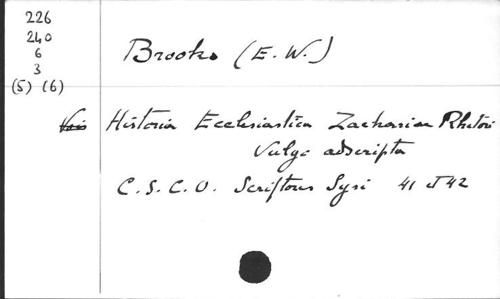 226
240
6
3
(5) (6)
Brooks (E. W.)
Historia Ecclesiastica Zachariae Rhetori
Vulgo adscripta
C. S. C. O. Scriptores Syri 41 et 42